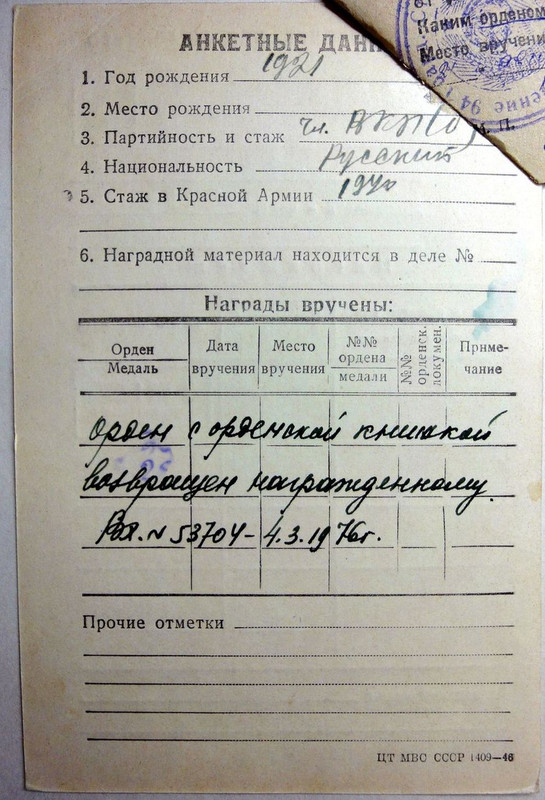 Каким орденом
Место вручения
М. П.
АНКЕТНЫЕ ДАНН
1. Год рождения 1921
2. Место рождения
3. Партийность и стаж чл. ВКП(б)
4. Национальность Русский
5. Стаж в Красной Армии 1940
6. Наградной материал находится в деле №
Награды вручены:
Орден
Медаль
Дата вручения
Место вручения
№№ ордена
медали
№№ орденск. докумен.
Приме-
чание
Орден с орденской книжкой
возвращен награжденному.
№ 53704 - 4.3.1976г.
Прочие отметки
ЦТ МВС СССР 1409—46